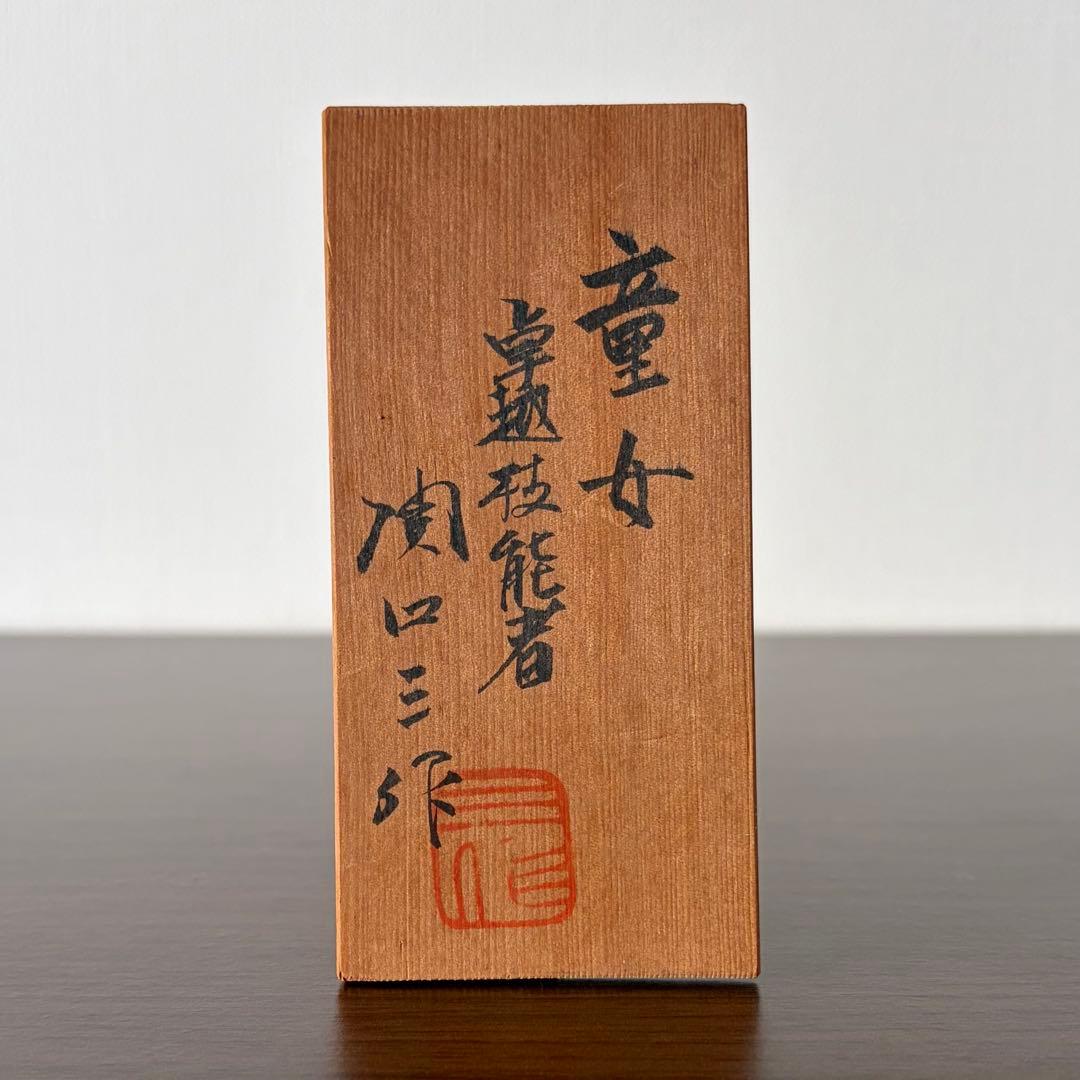 童女
卓越技能者
関口三作
三作